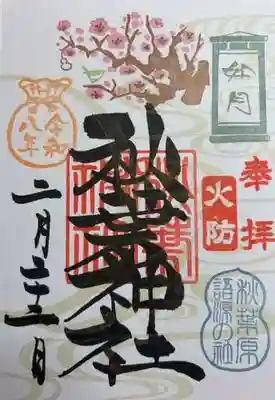 奉拝
火防
如月
秋葉神社
秋葉神社
令和
八年
二月二十二日
秋葉原
語源の社